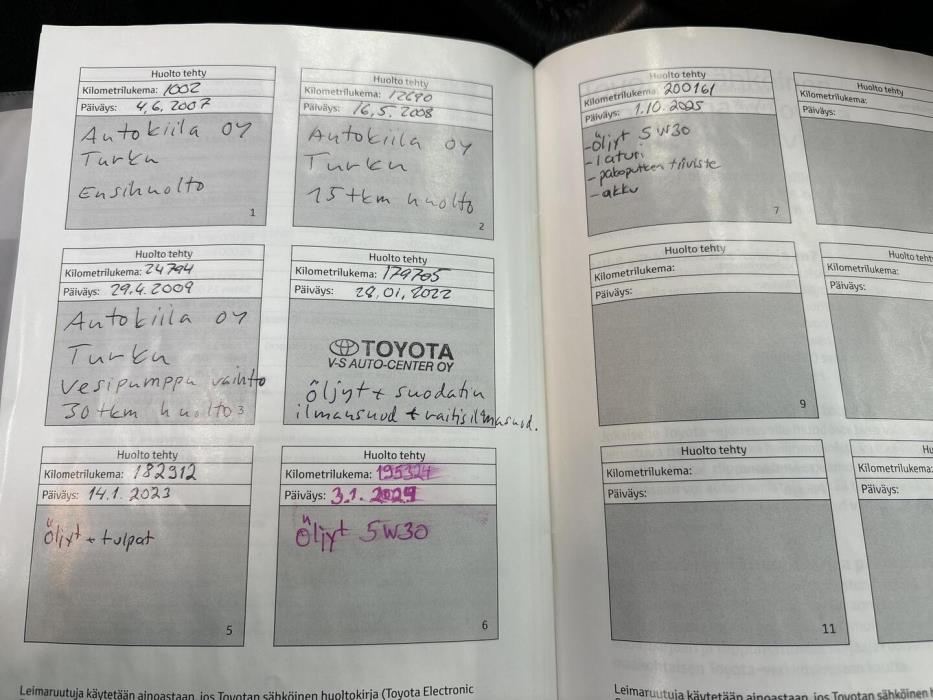 Huolto tehty
Kilometrilukema: 1002
Päiväys: 4.6.2007
Autokiila OY
Turku
Ensihuolto
1
Huolto tehty
Kilometrilukema: 12690
Päiväys: 16.5.2008
Autokiila OY
Turku
15tkm huolto
2
Huolto tehty
Kilometrilukema: 24794
Päiväys: 29.4.2009
Autokiila OY
Turku
Vesipumppu vaihto
30tkm huolto
3
Huolto tehty
Kilometrilukema: 179705
Päiväys: 28.01.2022
TOYOTA
V-S AUTO-CENTER OY
Öljyt + suodatin
ilmansuod + raitisilmasuod.
Huolto tehty
Kilometrilukema: 182312
Päiväys: 14.1.2023
Öljyt + tulpat
5
Huolto tehty
Kilometrilukema: 195324
Päiväys: 3.1.2024
Öljyt 5W30
6
Leimaruutuja käytetään ainoastaan, jos Toyotan sähköinen huoltokirja (Toyota Electronic
Huolto tehty
Kilometrilukema: 200161
Päiväys: 1.10.2025
-Öljyt 5W30
-laturi
-pakoputken tiiviste
-akku
7
Huolto tehty
Kilometrilukema:
Päiväys:
Huolto tehty
Kilometrilukema:
Päiväys:
9
Huolto teht
Kilometrilukema:
Päiväys:
Huolto tehty
Kilometrilukema:
Päiväys:
11
Hu
Kilometrilukema:
Päiväys:
Leimaruutuja käytetään ainoastaan, jos Toyotan sähköinen